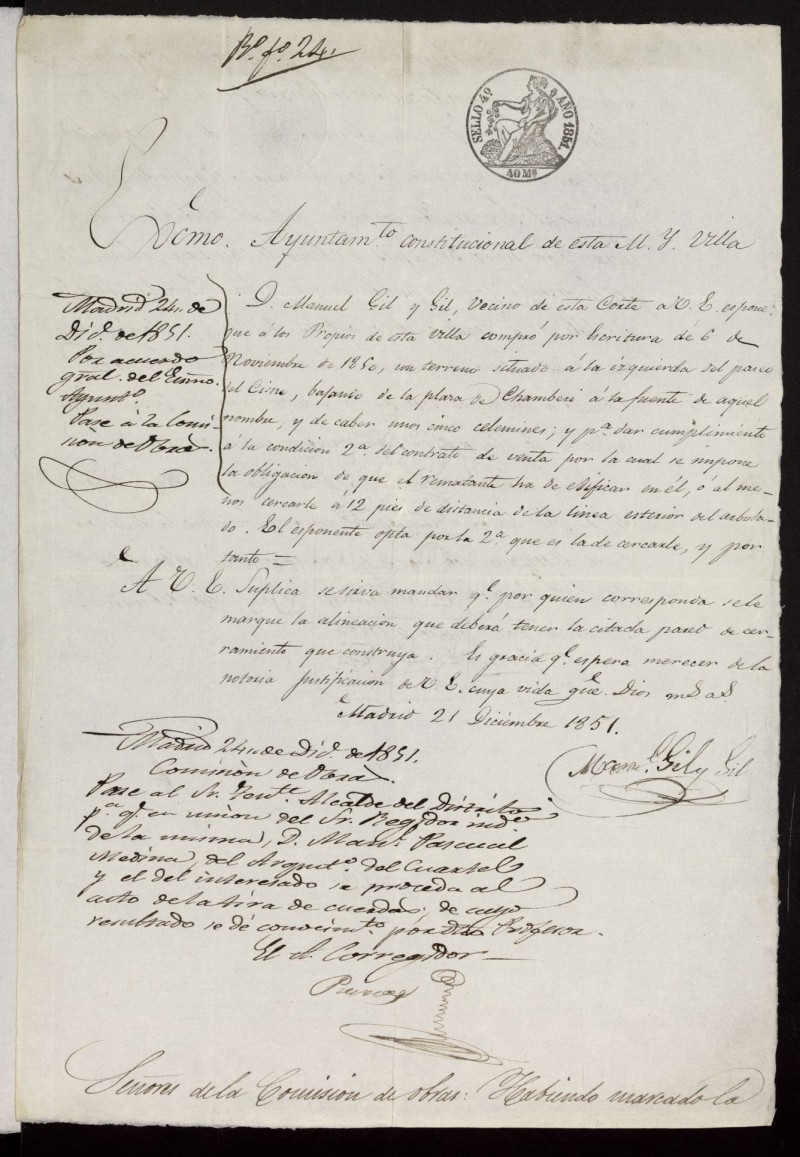 Rº fº 24.
SELLO 4º AÑO 1851.
40 Mº
Excmo. Ayuntamto constitucional de esta M. Y. Villa
Madrid 24 de
Dice. de 1851.
Por acuerdo
gral. del Exmo.
Ayuntº.
Pase à la Comi-
siòn de Obras.
D. Manuel Gil y Gil, Vecino de esta Corte a V. E. espone:
que á los Propios de esta Villa compró por Escritura de 6 de
Noviembre de 1850, un terreno situado á la izquierda del paseo
del Cisne, bajando de la plaza de Chamberi á la fuente de aquel
nombre, y de caber unos cinco celemines; y pª dar cumplimiento
á la condicion 2ª del contrato de venta por la cual se impone
la obligacion de que el rematante ha de edificar en él, ó al me-
nos cercarle á 12 pies de distancia de la linea exterior del arbola-
do. El esponente opta por la 2ª que es la de cercarle, y por
tanto =
A V. E. Suplica se sirva mandar q.e por quien corresponda se le
marque la alineacion que deberá tener la citada pared de cer-
ramiento que construya. Es gracia q.e espera merecer de la
notoria justificacion de V. E. cuya vida gue. Dios ms. as.
Madrid 21 Diciembre 1851.
Manl. Gil y Gil
Madrid 24 de Dice. de 1851.
Comisiòn de Obras.
Pase al Sr. Tente. Alcalde del Distrito
pª q.e en uniòn del Sr. Regidor indº
de la misma, D. Manl. Pascual
Medina, del Arquitº. del Cuartel
y el del interesado se proceda al
acto de la tira de cuerdas, de cuyo
resultado se dé conocimto. por dho Profesor.
El A. Corregidor
Señores de la Comisión de obras: Habiendo marcado la